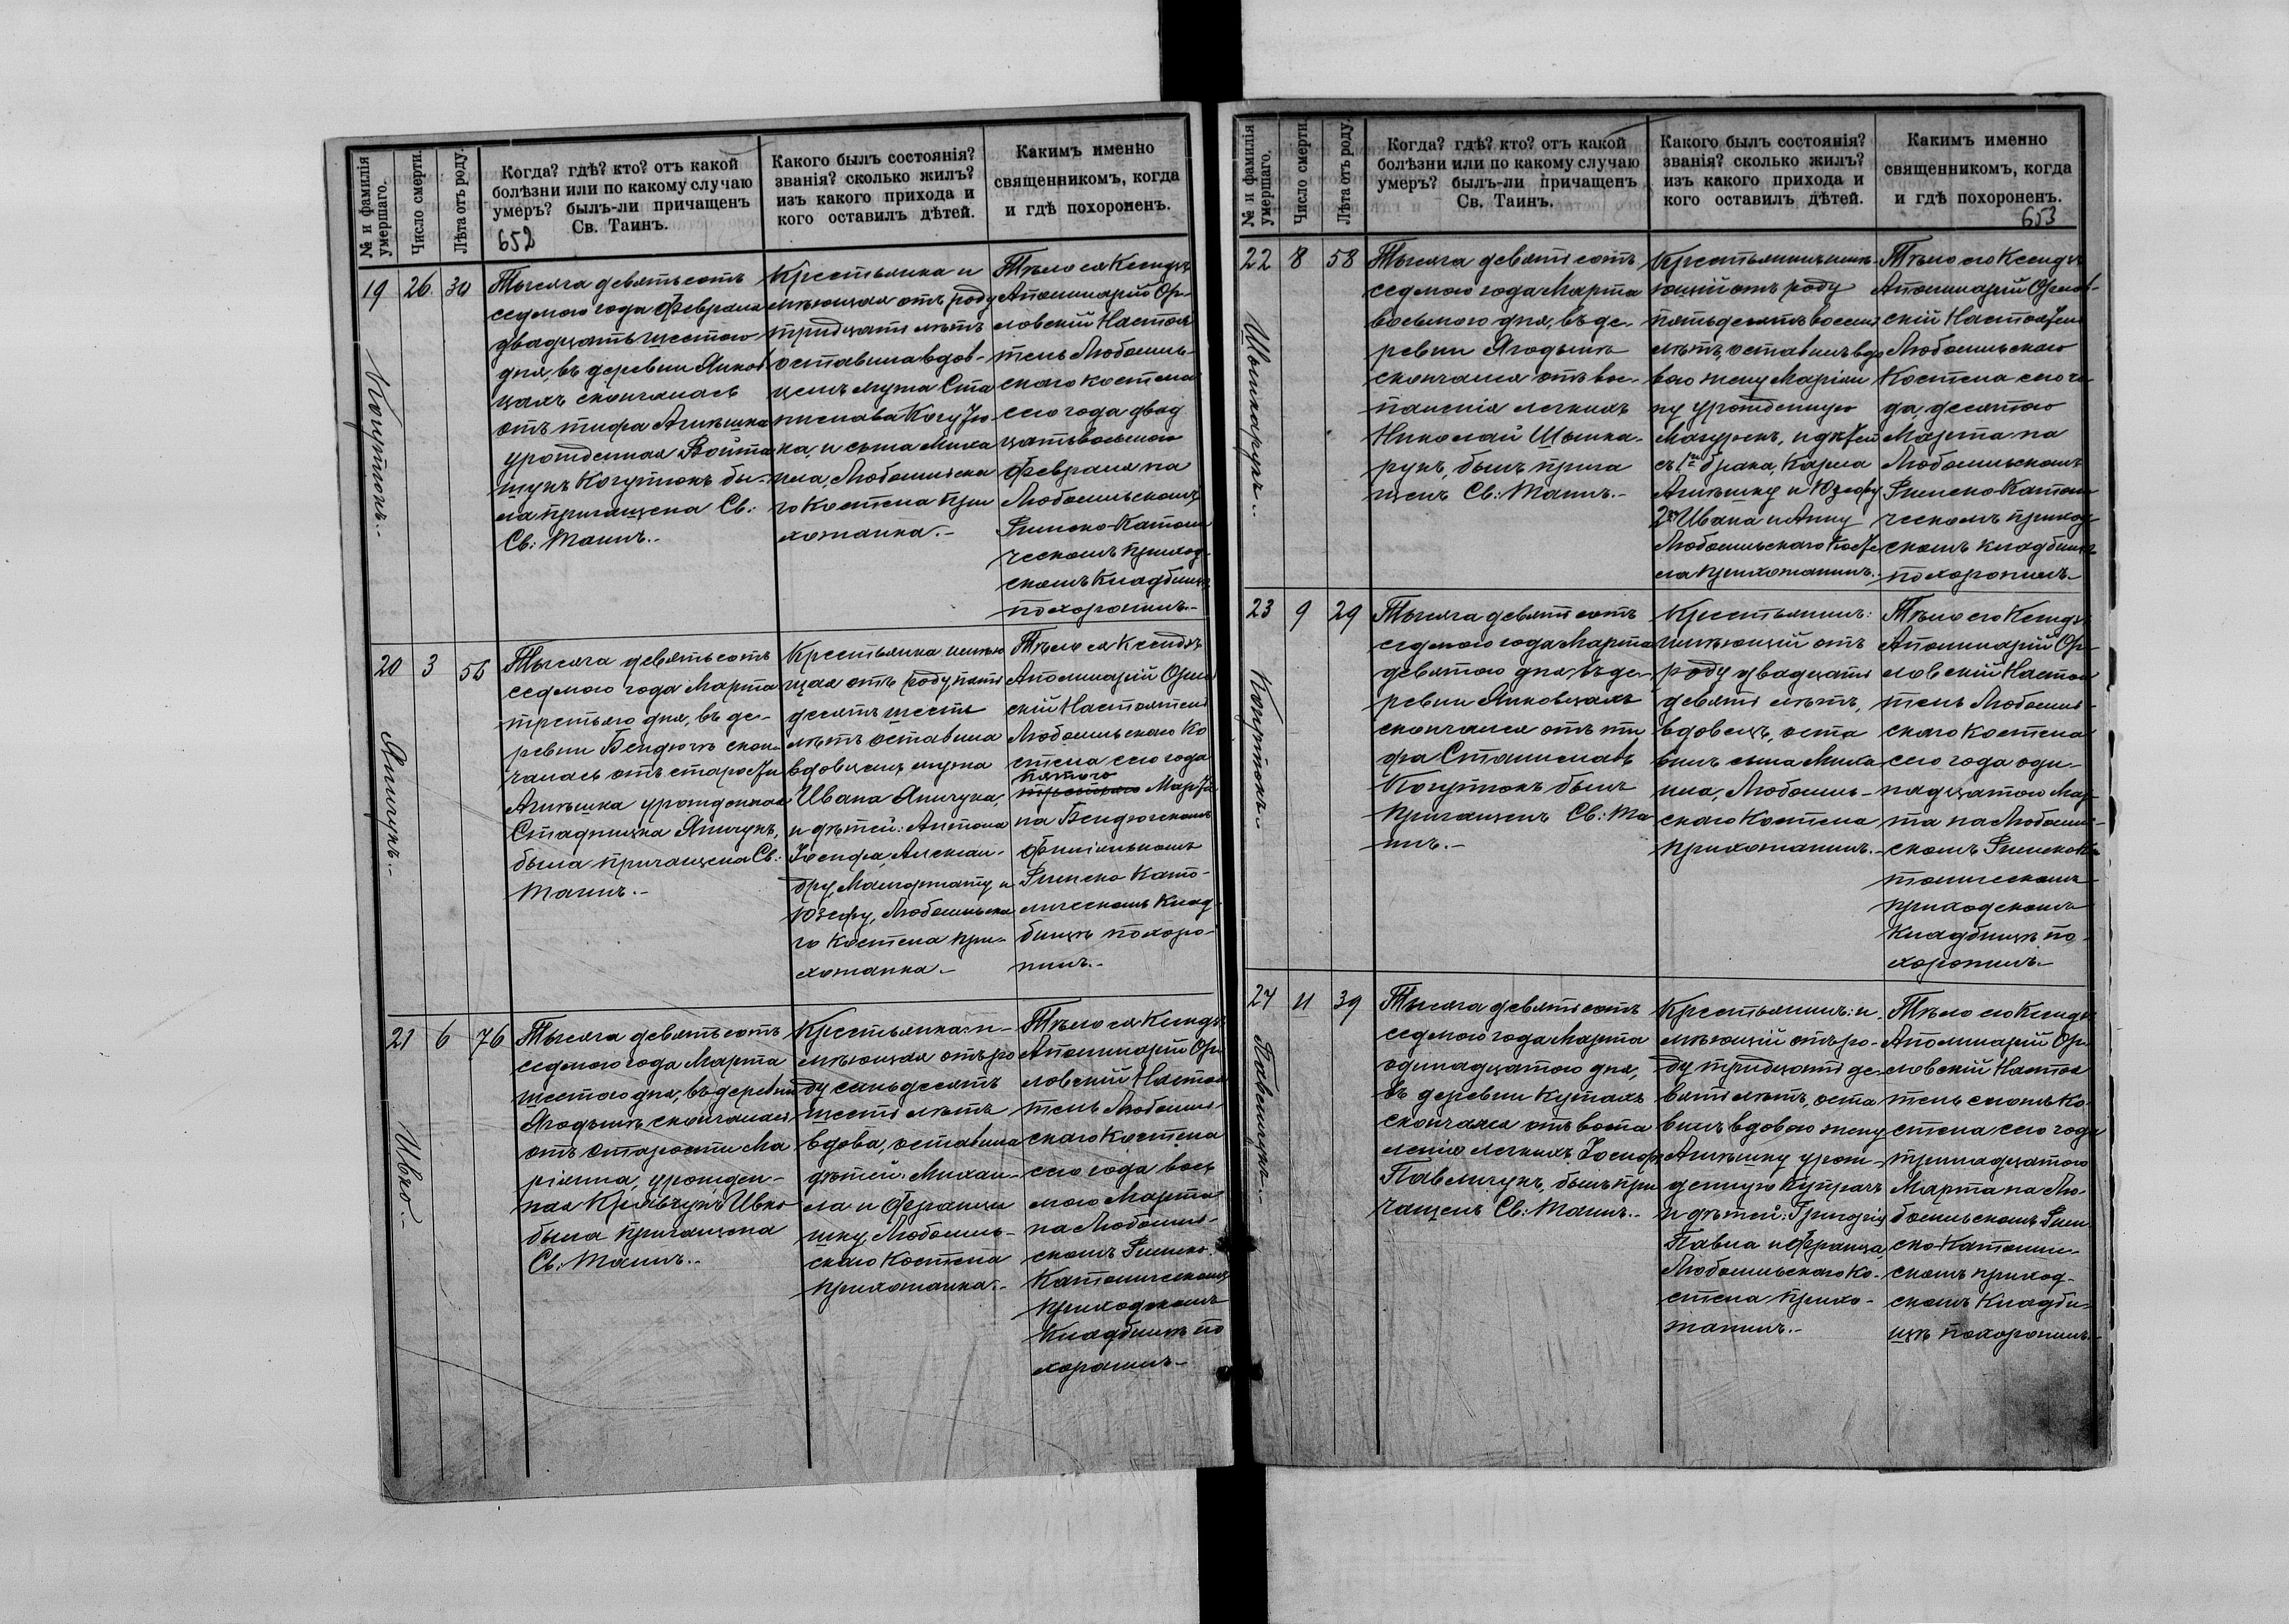 № и фамилія умершаго.
Число смерти.
Лѣта отъ роду.
Когда? гдѣ? кто? отъ какой
болѣзни или по какому случаю
умеръ? былъ-ли причащенъ
Св. Таинъ.
652
Какого былъ состоянія?
званія? сколько жилъ?
изъ какого прихода и
кого оставилъ дѣтей.
Какимъ именно
священникомъ, когда
и гдѣ похороненъ.
19
Когутюкъ.-
26.
30
Тысяча девятьсотъ
седмого года Февраля
двадцать шестого
дня, въ деревни Янков
цахъ скончалась
отъ тифа Агнѣшка
урожденная Войта
щукъ Когутюкъ бы-
ла причащена Св:
Св: Таинъ.-
Крестьянка и
мѣющая отъ роду
тридцать лѣтъ
оставила вдов-
цемъ мужа Ста
нислава Когутю
ка, и сына Миха
ила, Любомльска
го Костела при
хожанка.-
Тѣло ея Ксендзъ
Аполинарій Ор-
ловскій Настоя
тель Любомль-
скаго Костела
сего года двад
цать восьмого
Февраля на
Любомльскомъ
Римско-Католи
ческомъ приход
скомъ Кладбищѣ
похоронилъ.-
20
Янчукъ.-
3
56
Тысяча девятьсотъ
седмого года Марта
третьяго дня, въ де-
ревни Бендюгѣ скон
чалась отъ старости
Агнѣшка урожденная
Стадницка Янчукъ,
была причащена Св:
Таинъ.-
Крестьянка имѣю
щая отъ роду пять
десятъ шесть
лѣтъ оставила
вдовцемъ мужа
Ивана Янчука,
и дѣтей: Антона
Іосифа, Алексан-
дру, Малгоржату, и
Юзефу, Любомльска
го Костела при-
хожанка.-
Тѣло ея Ксендзъ
Аполинарій Орлов
скій Настоятель
Любомльскаго Ко
стела сего года
пятого
Марта
на Бендюгскомъ
филіальномъ
Римско Като-
лическомъ Клад
бищѣ похоро-
нилъ.-
21
Ивко.-
6
76
Тысяча девятьсотъ
седмого года Марта
шестого дня, въ деревни
Ягодынѣ скончалась
отъ старости Ма
ріянна, урожден-
ная Кравчукъ Ивко
была причащена
Св: Таинъ.-
Крестьянка: и-
мѣющая отъ ро
ду семьдесятъ
шесть лѣтъ
вдова, оставила
дѣтей: Михаи-
ла и Францы
шку, Любомль-
скаго Костела
прихожанка.-
Тѣло ея Ксендзъ
Аполинарій Ор
ловскій Настоя
тель Любомль-
скаго Костела
сего года вось
мого Марта
на Любомль-
скомъ Римско
Католическомъ
приходскомъ
Кладбищѣ по
хоронилъ-
№ и фамилія умершаго.
Число смерти.
Лѣта отъ роду.
Когда? гдѣ? кто? отъ какой
болѣзни или по какому случаю
умеръ? былъ-ли причащенъ
Св. Таинъ.
Какого былъ состоянія?
званія? сколько жилъ?
изъ какого прихода и
кого оставилъ дѣтей.
Какимъ именно
священникомъ, когда
и гдѣ похороненъ.
653
22
8
58
Тысяча девятьсотъ
седмого года Марта
восьмого дня, въ де-
ревни Ягодынѣ
скончался отъ вос-
паленія легкихъ
Николай
былъ прича
щенъ Св: Таинъ.-
Крестьянинъ имѣ-
ющій отъ роду
пятьдесятъ восемь
лѣтъ, оставилъ вдо
вою жену Маріан
ну урожденную
Мазурекъ, и дѣтей
съ 1го брака, Карла
Агнѣшку и Юзефу
2го Ивана и Анну
Любомльскаго Косте
ла прихожанинъ.-
Тѣло его Ксендзъ
Аполинарій Орлов-
скій Настоятель
Любомльскаго
Костела сего го
да десятого
Марта на
Любомльскомъ
Римско Католи
ческомъ приход
скомъ кладбищѣ
похоронилъ-
23
Когутюкъ.-
9
29
Тысяча девятьсотъ
седмого года Марта
девятого дня въ де-
ревни Янковцахъ
скончался отъ ти
фа Станиславъ
Когутюкъ былъ
причащенъ Св: Та
инъ.-
Крестьянинъ:
имѣющій отъ
роду двадцать
девять лѣтъ,
вдовецъ, оста
вилъ сына Миха
ила, Любомль-
скаго Костела
прихожанинъ.-
Тѣло его Ксендзъ
Аполинарій Ор-
ловскій Настоя
тель Любомль-
скаго Костела
сего года оди-
надцатого Мар-
та на Любомль-
скомъ Римско Ка
толическомъ
приходскомъ
Кладбищѣ по-
хоронилъ-
24
Павельчукъ.-
11
39
Тысяча девятьсотъ
седмого года Марта
одинадцатого дня,
въ деревни Кутахъ
скончался отъ воспа
ленія легкихъ Іосифъ
Павельчукъ, былъ при
чащенъ Св: Таинъ.-
Крестьянинъ: и
мѣющій отъ ро-
ду тридцать де-
вять лѣтъ, оста
вилъ вдовою жену
Агнѣшку урож-
денную Купрачъ
и дѣтей: Григорія
Павла и Франца,
Любомльскаго Ко-
стела прихо-
жанинъ.-
Тѣло его Ксендзъ
Аполинарій Ор-
ловскій Настоя
тель Ко-
стела сего года
тринадцатого
Марта на Лю-
бомльскомъ Рим
ско-Католиче
скомъ приход-
скомъ Кладби-
щѣ похоронилъ-